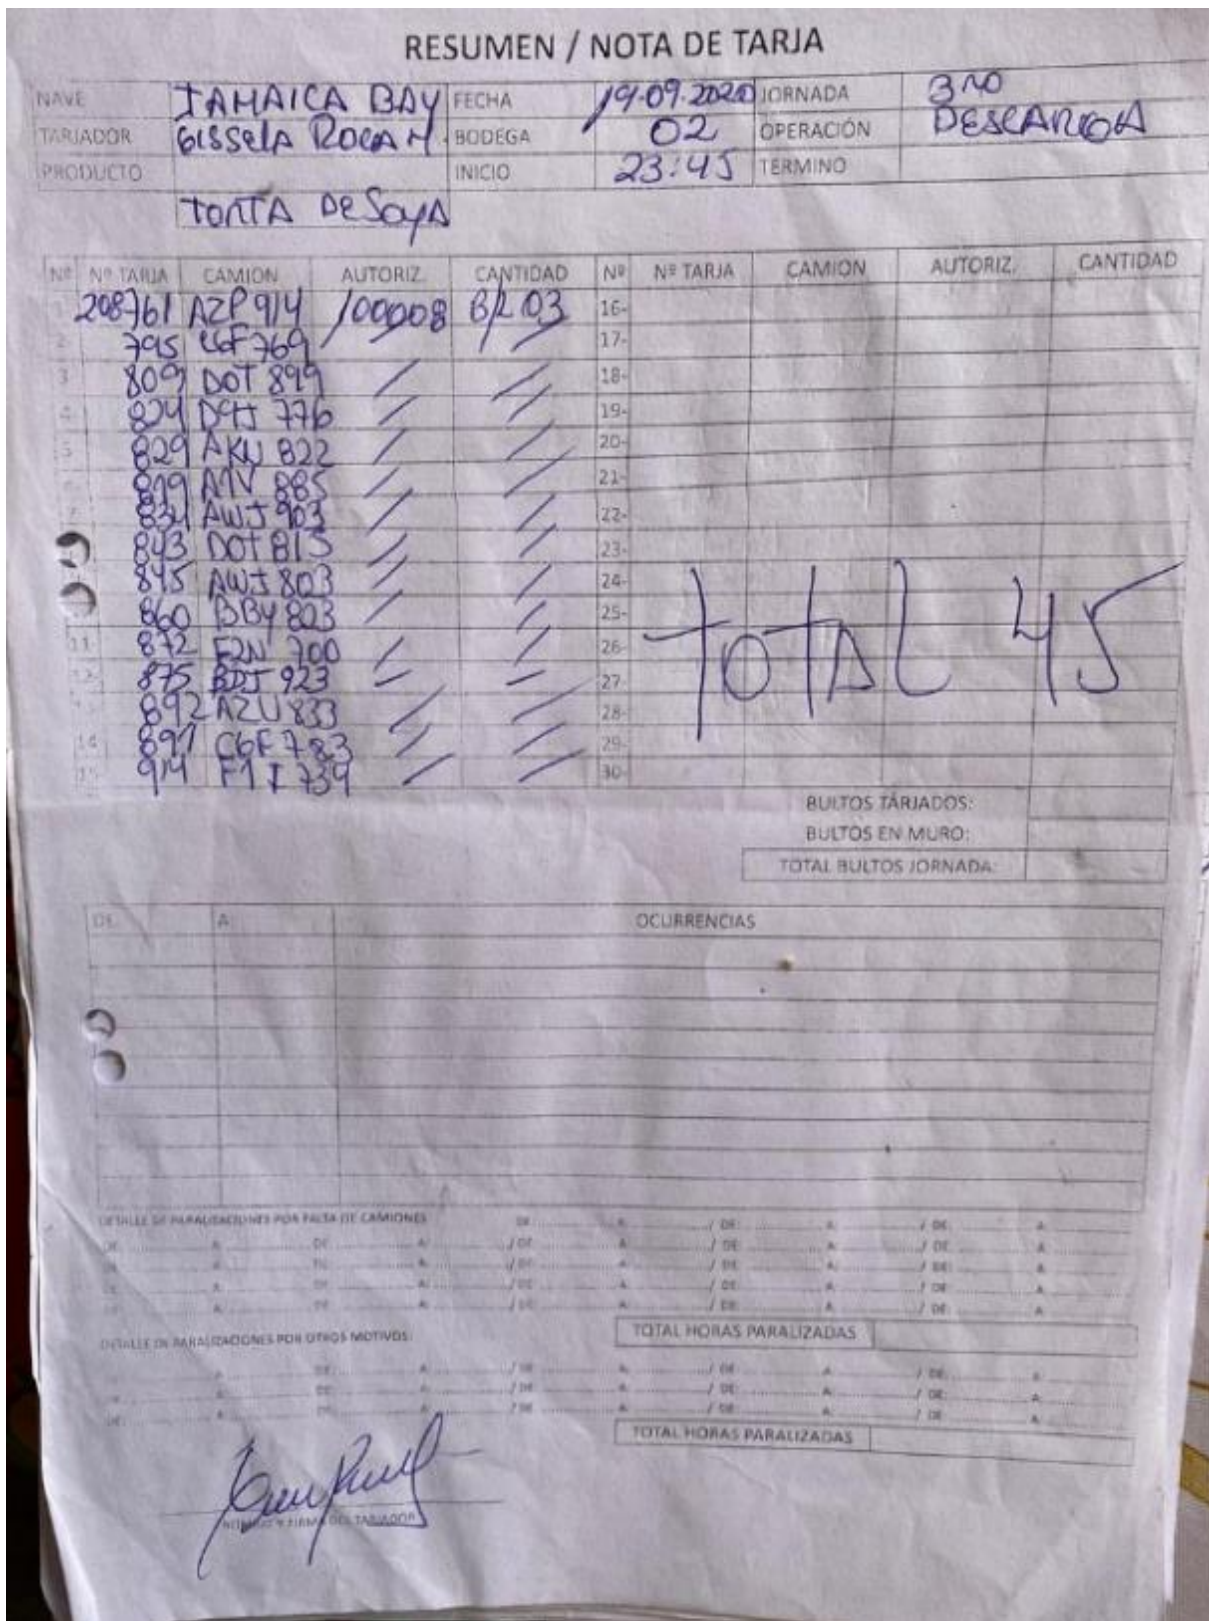 RESUMEN / NOTA DE TARJA
NAVE JAMAICA BAY FECHA 19.09.2020 JORNADA 3RO
TARJADOR GISSELA ROCA M. BODEGA 02 OPERACIÓN DESCARGA
PRODUCTO INICIO 23:45 TERMINO
TORTA DE SOYA
Nº Nº TARJA CAMION AUTORIZ. CANTIDAD Nº Nº TARJA CAMION AUTORIZ. CANTIDAD
1 208761 AZP 914 100008 B/L 03 16-
2 795 C6F 769 / // 17-
3 809 DOT 899 / // 18-
4 824 776 / // 19-
5 829 AKU 822 / // 20-
819 885 / // 21-
834 AWJ 903 / // 22-
843 DOT 815 / // 23-
845 AWJ 803 / // 24-
860 BBY 803 / // 25-
11 872 F2N 700 / // 26-
12 875 BDJ 923 / // 27
892 AZU 833 / // 28-
14 897 C6F 783 / // 29-
15 914 F1I 739 / // 30-
TOTAL 45
BULTOS TARJADOS:
BULTOS EN MURO:
TOTAL BULTOS JORNADA:
DE A: OCURRENCIAS
DETALLE DE PARALIZACIONES POR FALTA DE CAMIONES DE: A: / DE: A: / DE: A:
DE: A: DE: A: / DE: A: / DE: A: / DE: A:
DE: A: DE: A: / DE: A: / DE: A: / DE: A:
DE: A: DE: A: / DE: A: / DE: A: / DE: A:
DE: A: DE: A: / DE: A: / DE: A: / DE: A:
TOTAL HORAS PARALIZADAS
DETALLE DE PARALIZACIONES POR OTROS MOTIVOS:
A: DE: A: / DE: A: / DE: A: / DE: A:
DE: A: DE: A: / DE: A: / DE: A: / DE: A:
DE: A: DE: A: / DE: A: / DE: A: / DE: A:
TOTAL HORAS PARALIZADAS
NOMBRE Y FIRMA DEL TARJADOR